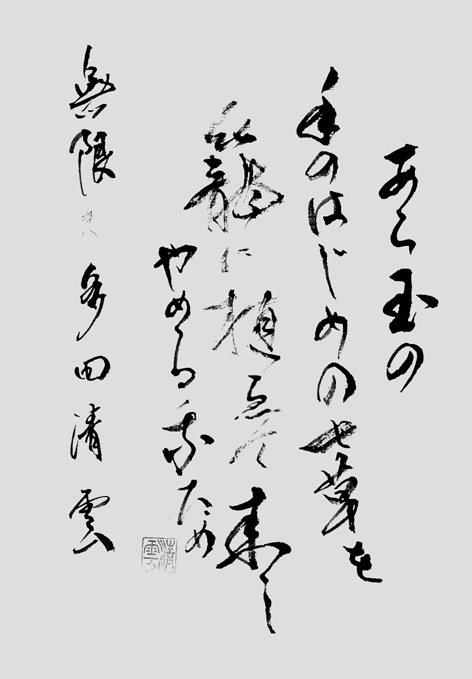 あら玉の
年のはじめの七草を
籠に植ゑて来し
やめる我ため
無限 多田清雲
清雲